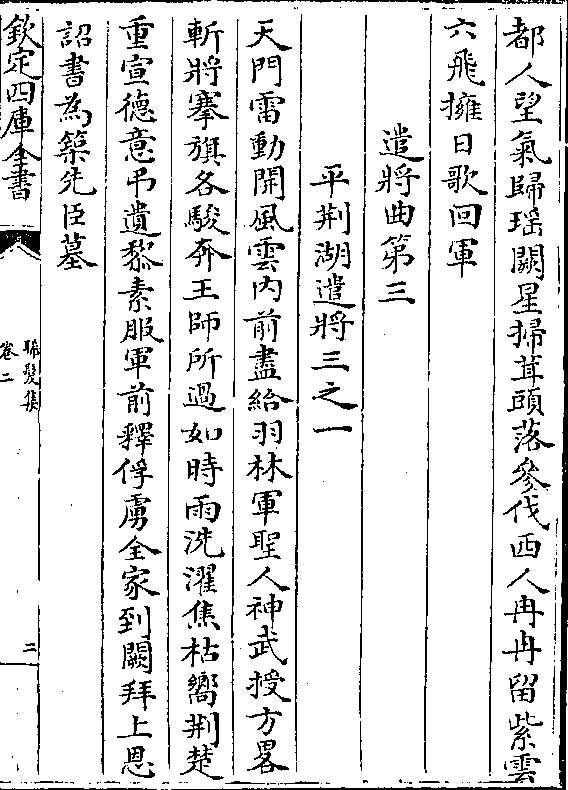 都人望氣歸瑶闕星掃茸頭落參伐西人冉冉留紫雲
六飛擁日歌回軍
遣將曲第三
平荆湖遣將三之一
天門雷動開風雲内前盡給羽林軍聖人神武授方畧
斬將搴旗各駿奔王師所過如時雨洗濯焦枯嚮荆楚
重宣德意弔遺黎素服軍前釋俘虜全家到闕拜上恩
詔書為築先臣墓
欽定四庫全書
晞髮集
卷二
二